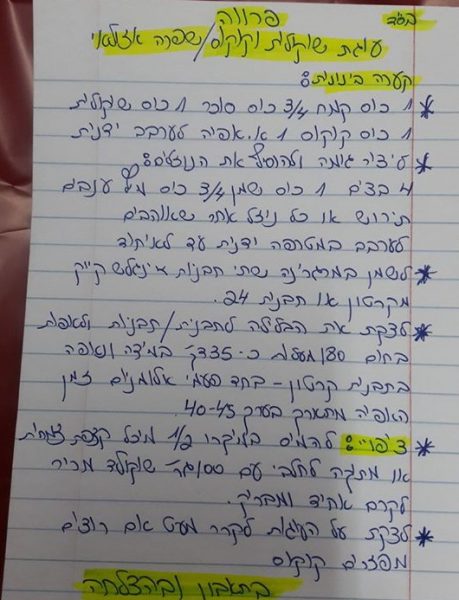 בס״ד
פרווה
עוגת שוקולית וקוקוס/שפרה אזולאי
קערה בינונית:
* 1 כוס קמח 3/4 כוס סוכר 1 כוס שוקולית
1 כוס קוקוס 1 א. אפיה לערבב ידנית
* ליציר גומה ולהוסיף את הנוזלים:
4 בצים 1 כוס שמן 3/4 כוס מיץ ענבים
תירוש או כל נוזל אחר שאוהבים
לערבב במטרפה ידנית עד לאיחוד
* לשמן במרגרינה שתי תבניות אינגליש קייק
מקרטון או תבנית 24.
* לצקת את הבלילה לתבנית/תבניות ולאפות
בחום 180 מעלות כ-35 דק׳ במידה ונאפה
בתבנית קרטון - בחד פעמי אלומניום זמן
האפיה מתארך בערך 40-45.
* ציפוי: להמיס במיקרו 1/2 מיכל קצפת צמחית
או מתוקה לחלבי עם 100 גר׳ שוקולד מריר
לקרם אחיד ומבריק.
* לצקת על העוגות לקרר מעט אם רוצים
מפזרים קוקוס
בתאבון ובהצלחה